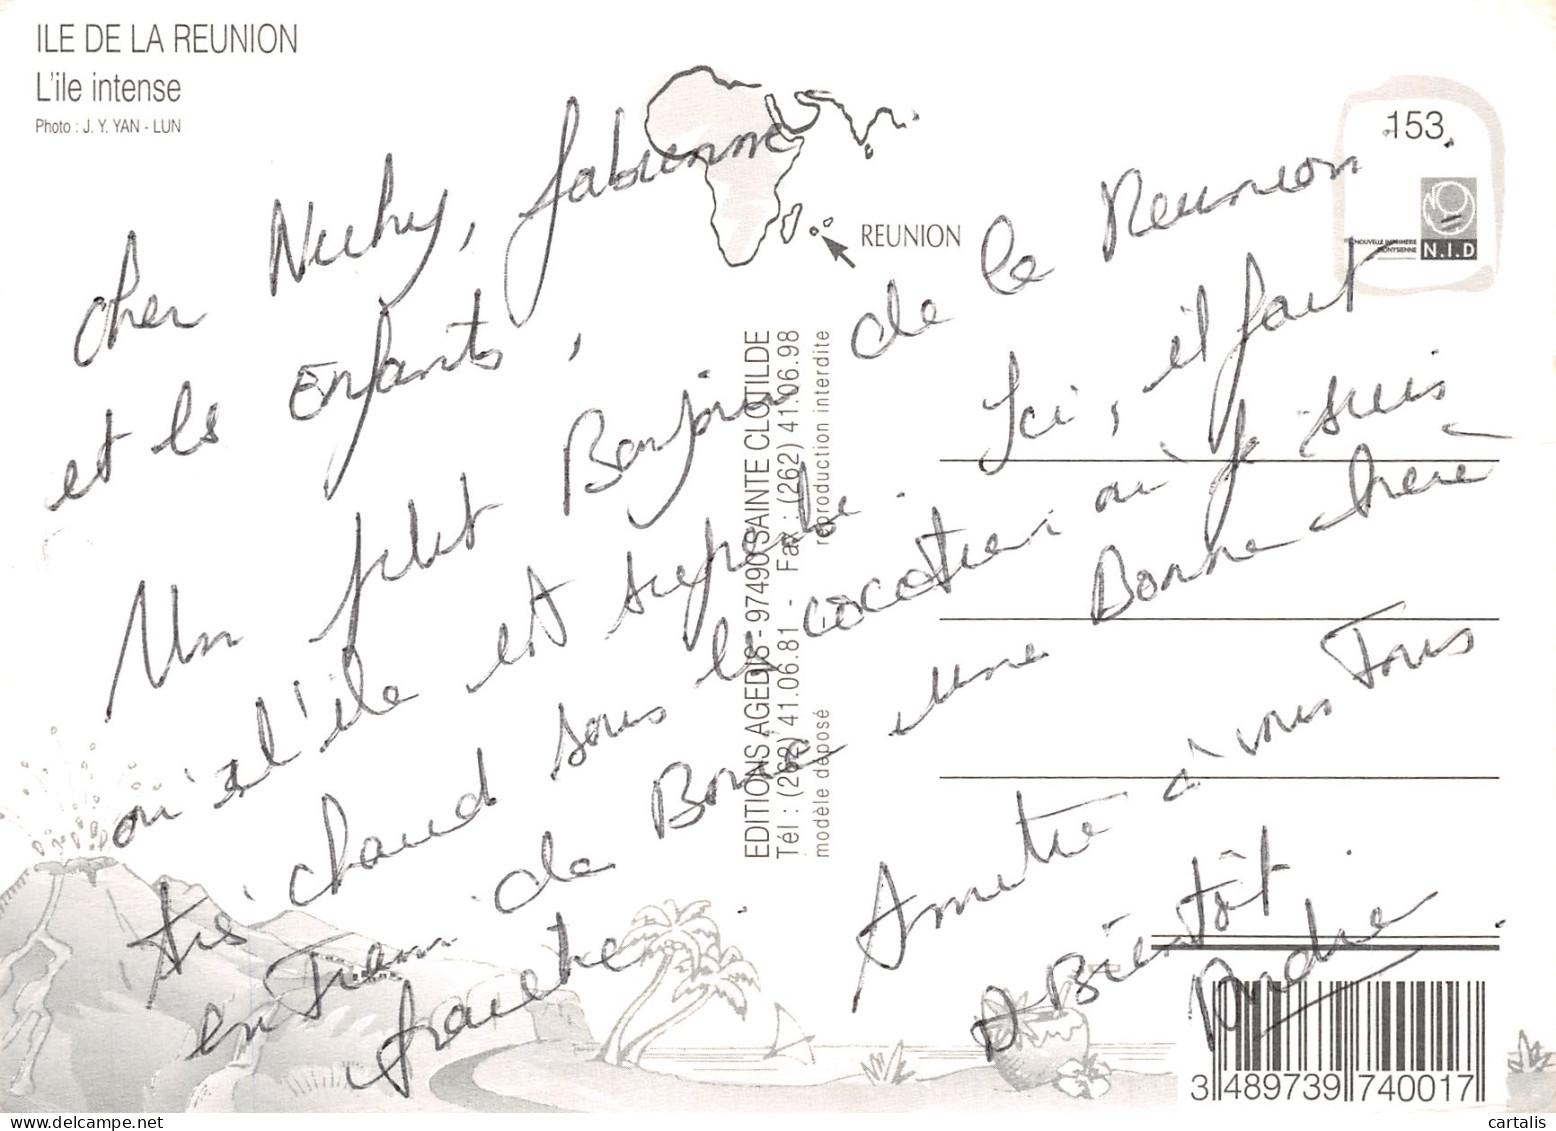 ILE DE LA REUNION
L'ile intense
Photo : J. Y. YAN - LUN
REUNION
153
NOUVELLE IMPRIMERIE
DIONYSIENNE
N.I.D
cher Michy, fabienne
et les Enfants,
Un petit Bonjour de la Reunion
où l'île est superbe. Ici, il fait
très chaud sous les cocotier où je suis
en train de Boire une Bonne bière
fraiche.
Amitié à vous Tous
A Bientôt
André
EDITIONS AGEDIS - 97490 SAINTE CLOTILDE
Tél : (262) 41.06.81 - Fax : (262) 41.06.98
modèle déposé reproduction interdite
3 489739 740017
cartalis